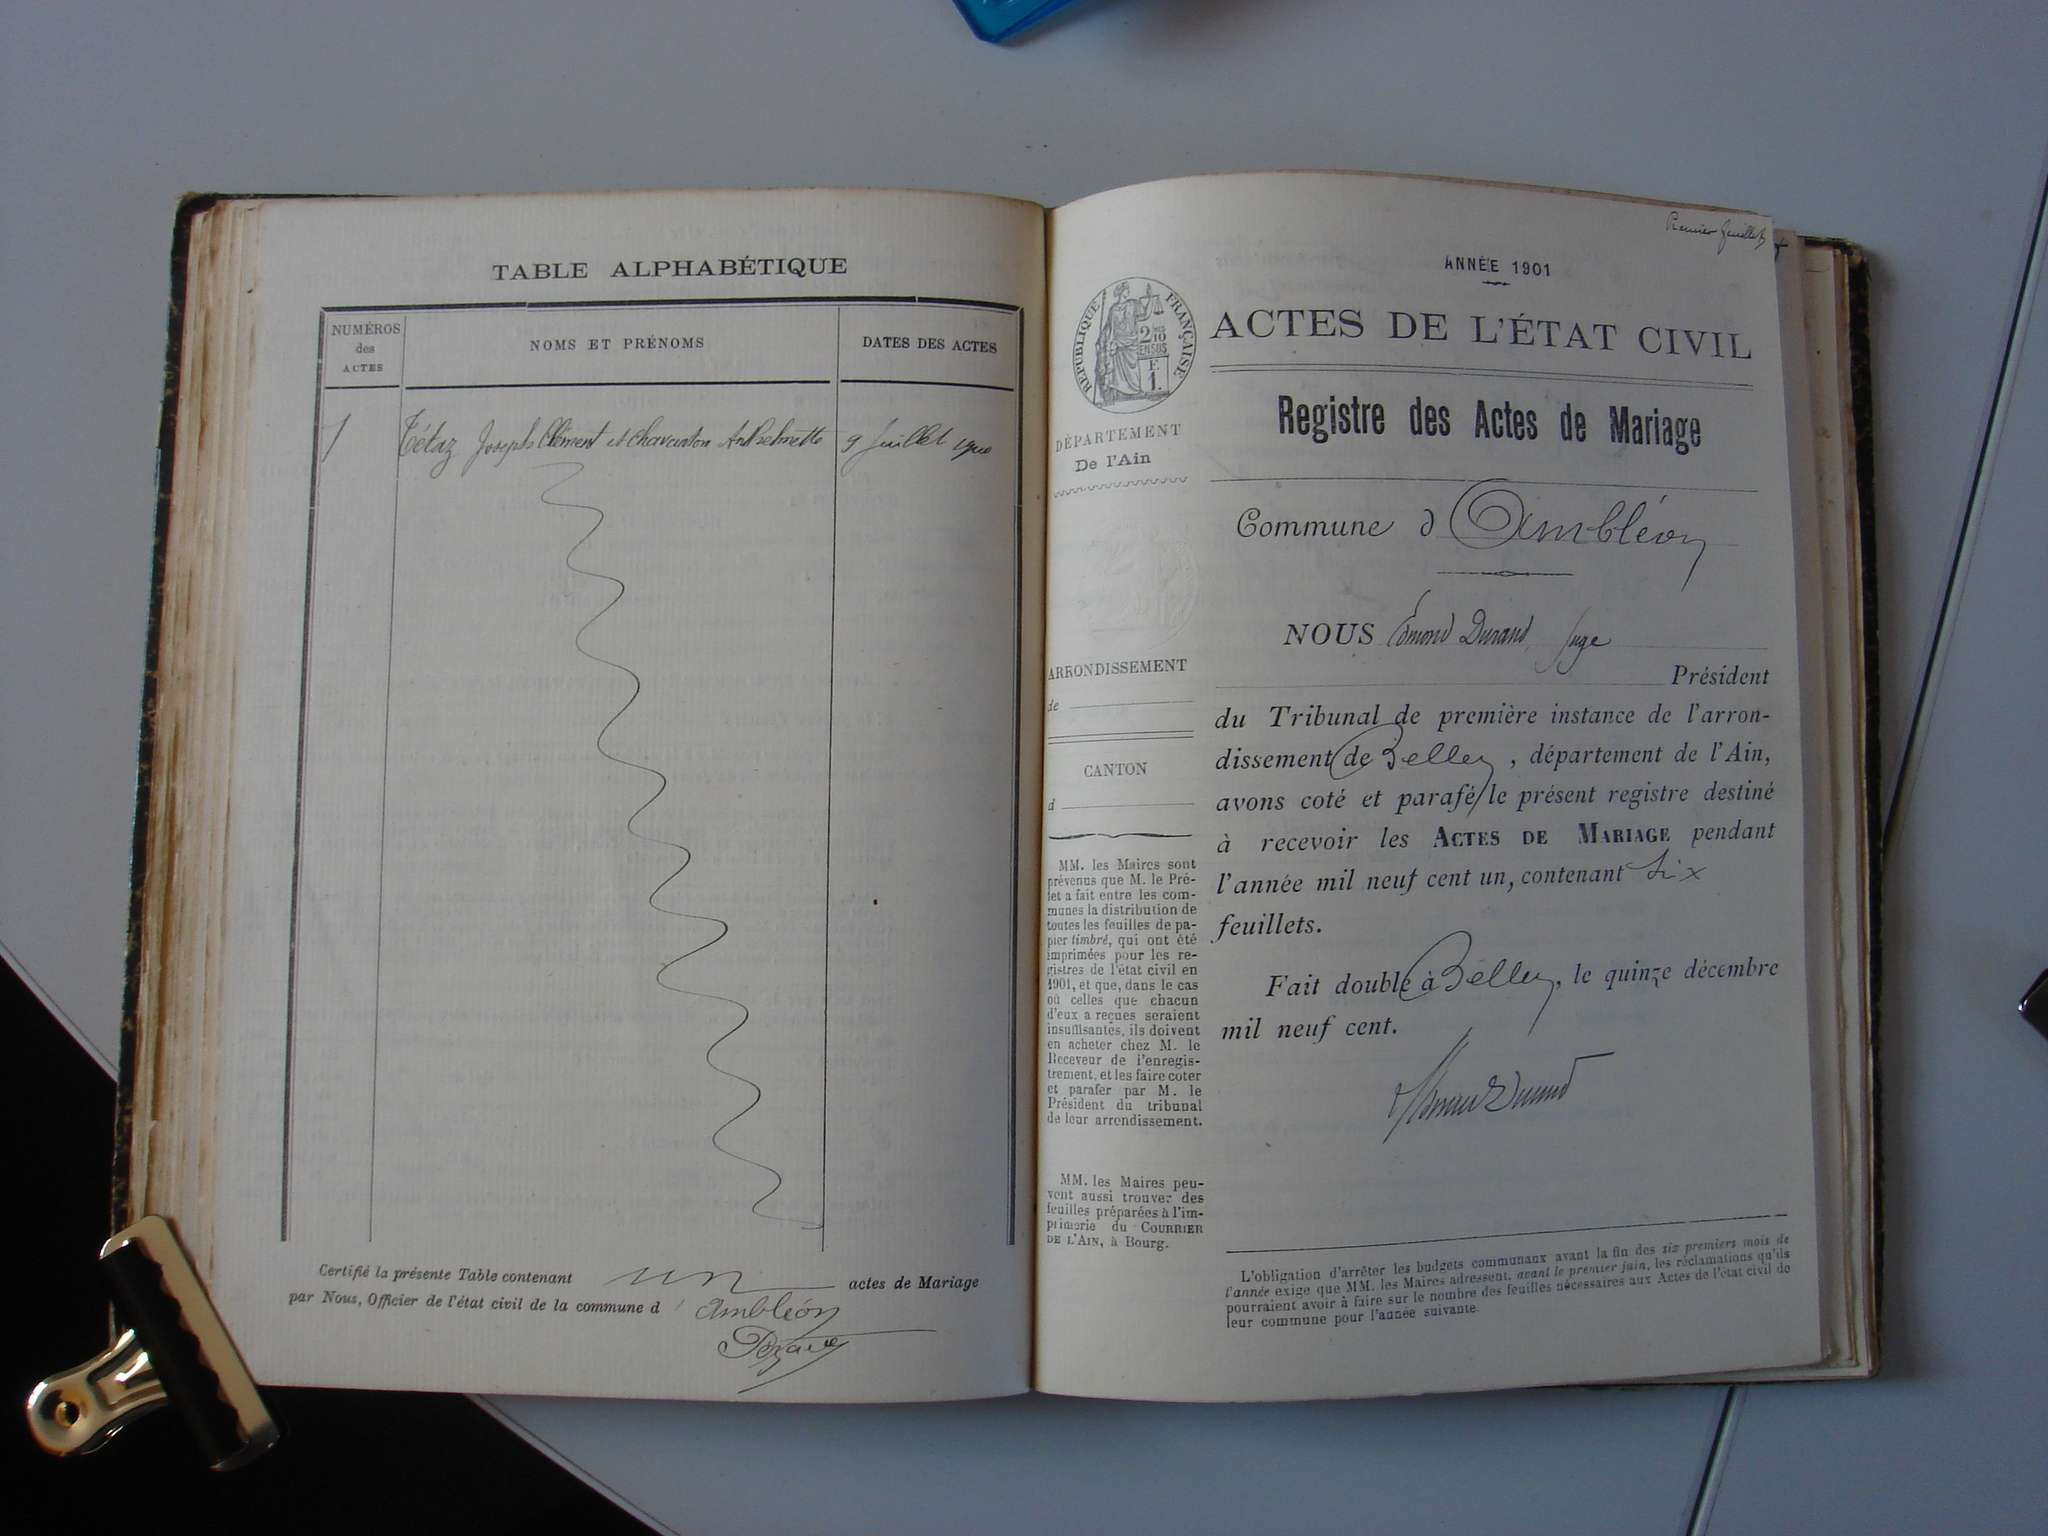 TABLE ALPHABÉTIQUE
NUMÉROS
des
ACTES
NOMS ET PRÉNOMS
DATES DES ACTES
1 Tétaz Joseph Clément et Chavanton Anthelmette 9 Juillet 1900
Certifié la présente Table contenant un actes de Mariage
par Nous, Officier de l'état civil de la commune d'Ambléon
Premier feuillet
ANNÉE 1901
ACTES DE L'ÉTAT CIVIL
RÉPUBLIQUE FRANÇAISE
2/10 EN SUS
F.
1.
DÉPARTEMENT
De l'Ain
Registre des Actes de Mariage
Commune d Ambléon
NOUS Edmond Durand, Juge
Président
du Tribunal de première instance de l'arron-
dissement de Belley, département de l'Ain,
avons coté et parafé le présent registre destiné
à recevoir les ACTES DE MARIAGE pendant
l'année mil neuf cent un, contenant six
feuillets.
Fait double à Belley, le quinze décembre
mil neuf cent.
ARRONDISSEMENT
de
CANTON
d
MM. les Maires sont
prévenus que M. le Pré-
fet a fait entre les com-
munes la distribution de
toutes les feuilles de pa-
pier timbré, qui ont été
imprimées pour les re-
gistres de l'état civil en
1901, et que, dans le cas
où celles que chacun
d'eux a reçues seraient
insuffisantes, ils doivent
en acheter chez M. le
Receveur de l'enregis-
trement, et les faire coter
et parafer par M. le
Président du tribunal
de leur arrondissement.
MM. les Maires peu-
vent aussi trouver des
feuilles préparées à l'im-
primerie du COURRIER
DE L'AIN, à Bourg.
L'obligation d'arrêter les budgets communaux avant la fin des six premiers mois de
l'année exige que MM. les Maires adressent, avant le premier juin, les réclamations qu'ils
pourraient avoir à faire sur le nombre des feuilles nécessaires aux Actes de l'état civil de
leur commune pour l'année suivante.